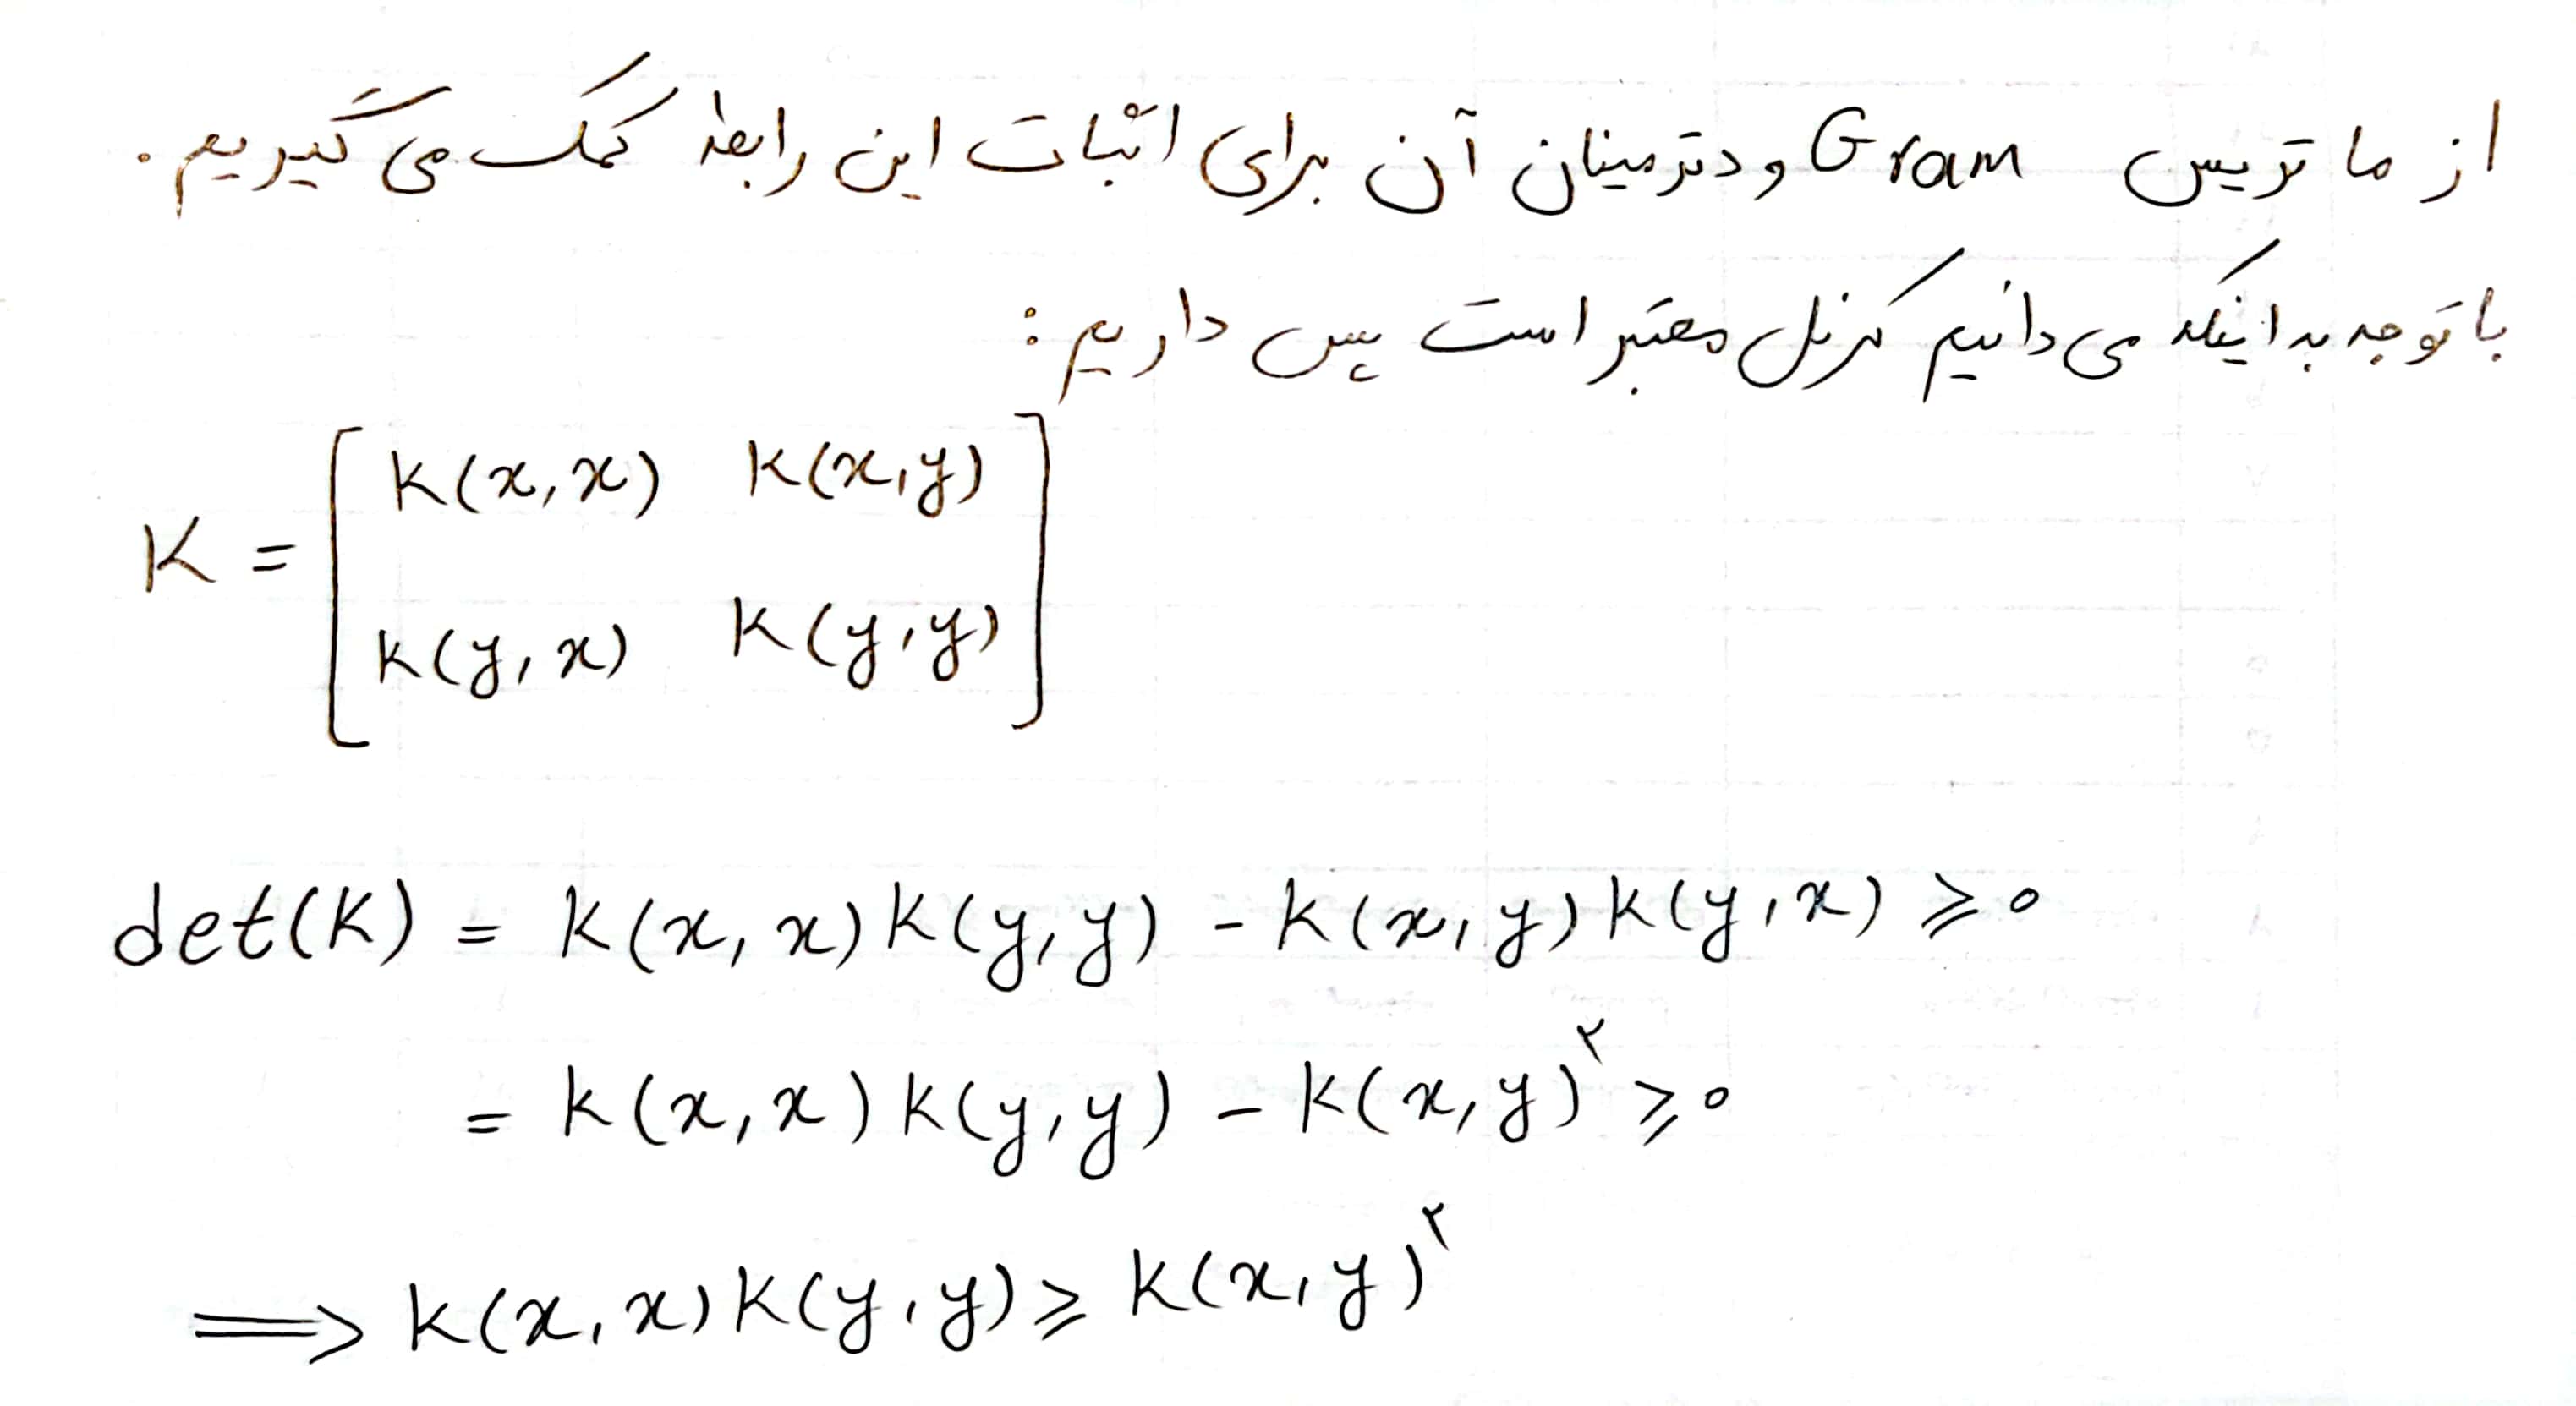 از ماتریس Gram و دترمینان آن برای اثبات این رابطه کمک می گیریم.
با توجه به اینکه می دانیم کرنل معتبر است پس داریم:
K = [ k(x,x) k(x,y)
k(y,x) k(y,y) ]
det(K) = k(x,x) k(y,y) - k(x,y) k(y,x) ⩾ 0
= k(x,x) k(y,y) - k(x,y)^۲ ⩾ 0
⟹ k(x,x) k(y,y) ⩾ k(x,y)^۲